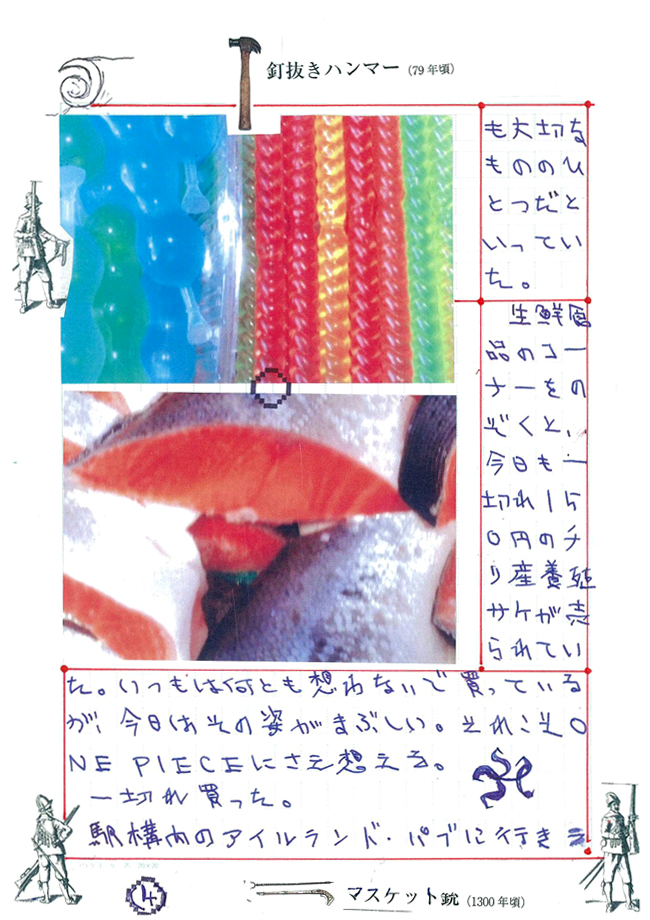 釘抜きハンマー（79年頃）
も大切な
もののひ
とつだと
いってい
た。
生鮮食
品のコー
ナーをの
ぞくと、
今日も一
切れ15
0円のチ
リ産養殖
サケが売
られてい
た。いつもは何とも想わないで買っている
が、今日はその姿がまぶしい。それこそO
NE PIECEにさえ想える。
一切れ買った。
駅構内のアイルランド・パブに行きえ
14
マスケット銃（1300年頃）